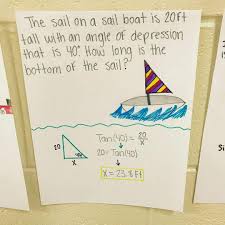 The sail on a sail boat is 20ft
tall with an angle of depression
that is 40°. How long is the
bottom of the sail?
Tan(40) = 20/x
20
40
x
20 = Tan(40)
x = 23.8 ft